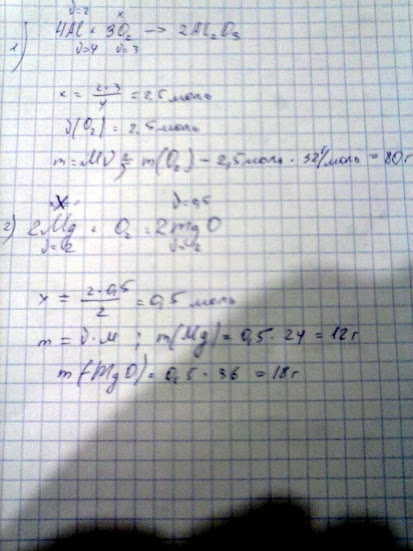 ν=2 x
1) 4Al + 3O₂ → 2Al₂O₃
ν=4 ν=3
x = 2·3/4 = 2,5 моль
ν(O₂) = 2,5 моль
m = Mν m(O₂) - 2,5 моль · 32 г/моль = 80 г
X ν=0,5
2) 2Mg + O₂ = 2MgO
ν=2 ν=2
x = 2·0,5/2 = 0,5 моль
m = ν·м ; m(Mg) = 0,5·24 = 12 г
m(MgO) = 0,5·36 = 18 г